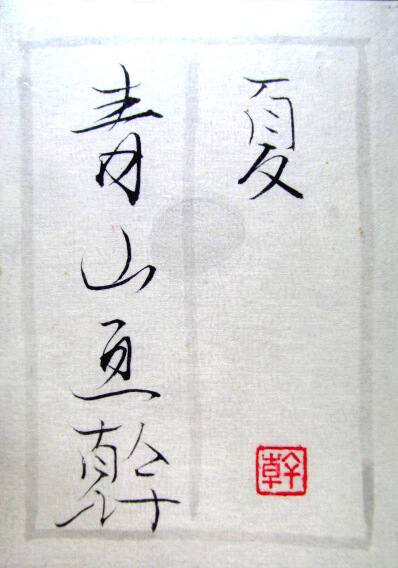 夏
青山亘幹
幹